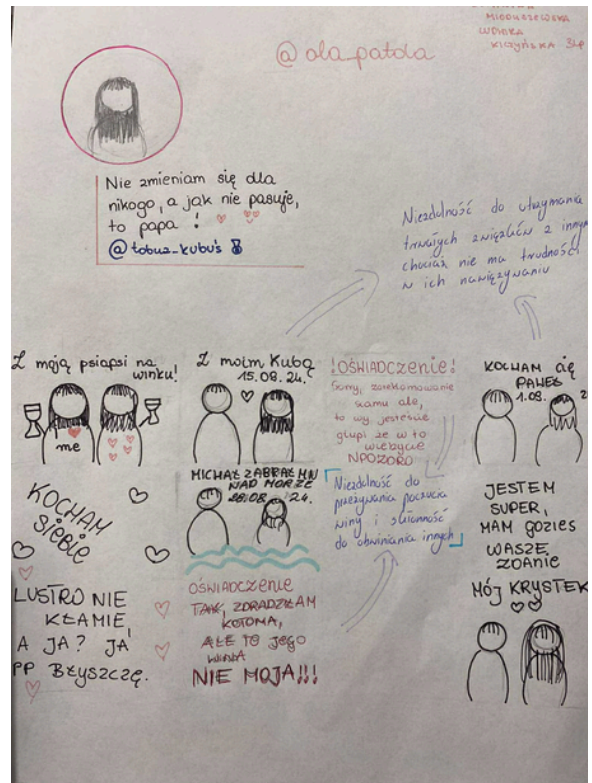 MIODUSZEWSKA
@ola_patola
Nie zmieniam się dla
nikogo, a jak nie pasuje,
to papa !
@tobuz_kubuś 8
Niezdolność do utrzymania
trwałych związków z innym
chociaż nie ma trudności
w ich nawiązywaniu
Z moją psiapsi na
winku!
me
Z moim Kubą
15.08. 24.
!OŚWIADCZENIE!
Sorry, zareklamowanie
scamu ale,
to wy jesteście
głupi że w to
wierzycie
NPOZDRO
KOCHAM cię
PAWEŁ
1.09. 2
KOCHAM
siebie
MICHAŁ ZABRAŁ MN
NAD MORZE
28.08. 24.
Niezdolność do
przeżywania poczucia
winy i skłonność
do obwiniania innych
JESTEM
SUPER,
MAM GDZIEŚ
WASZE
ZDANIE
LUSTRO NIE
KŁAMIE,
A JA? JA
PP BŁYSZCZĘ.
OŚWIADCZENIE
TAK, ZDRADZIŁAM
ALE TO JEGO
WINA
NIE MOJA!!!
MÓJ KRYSTEK